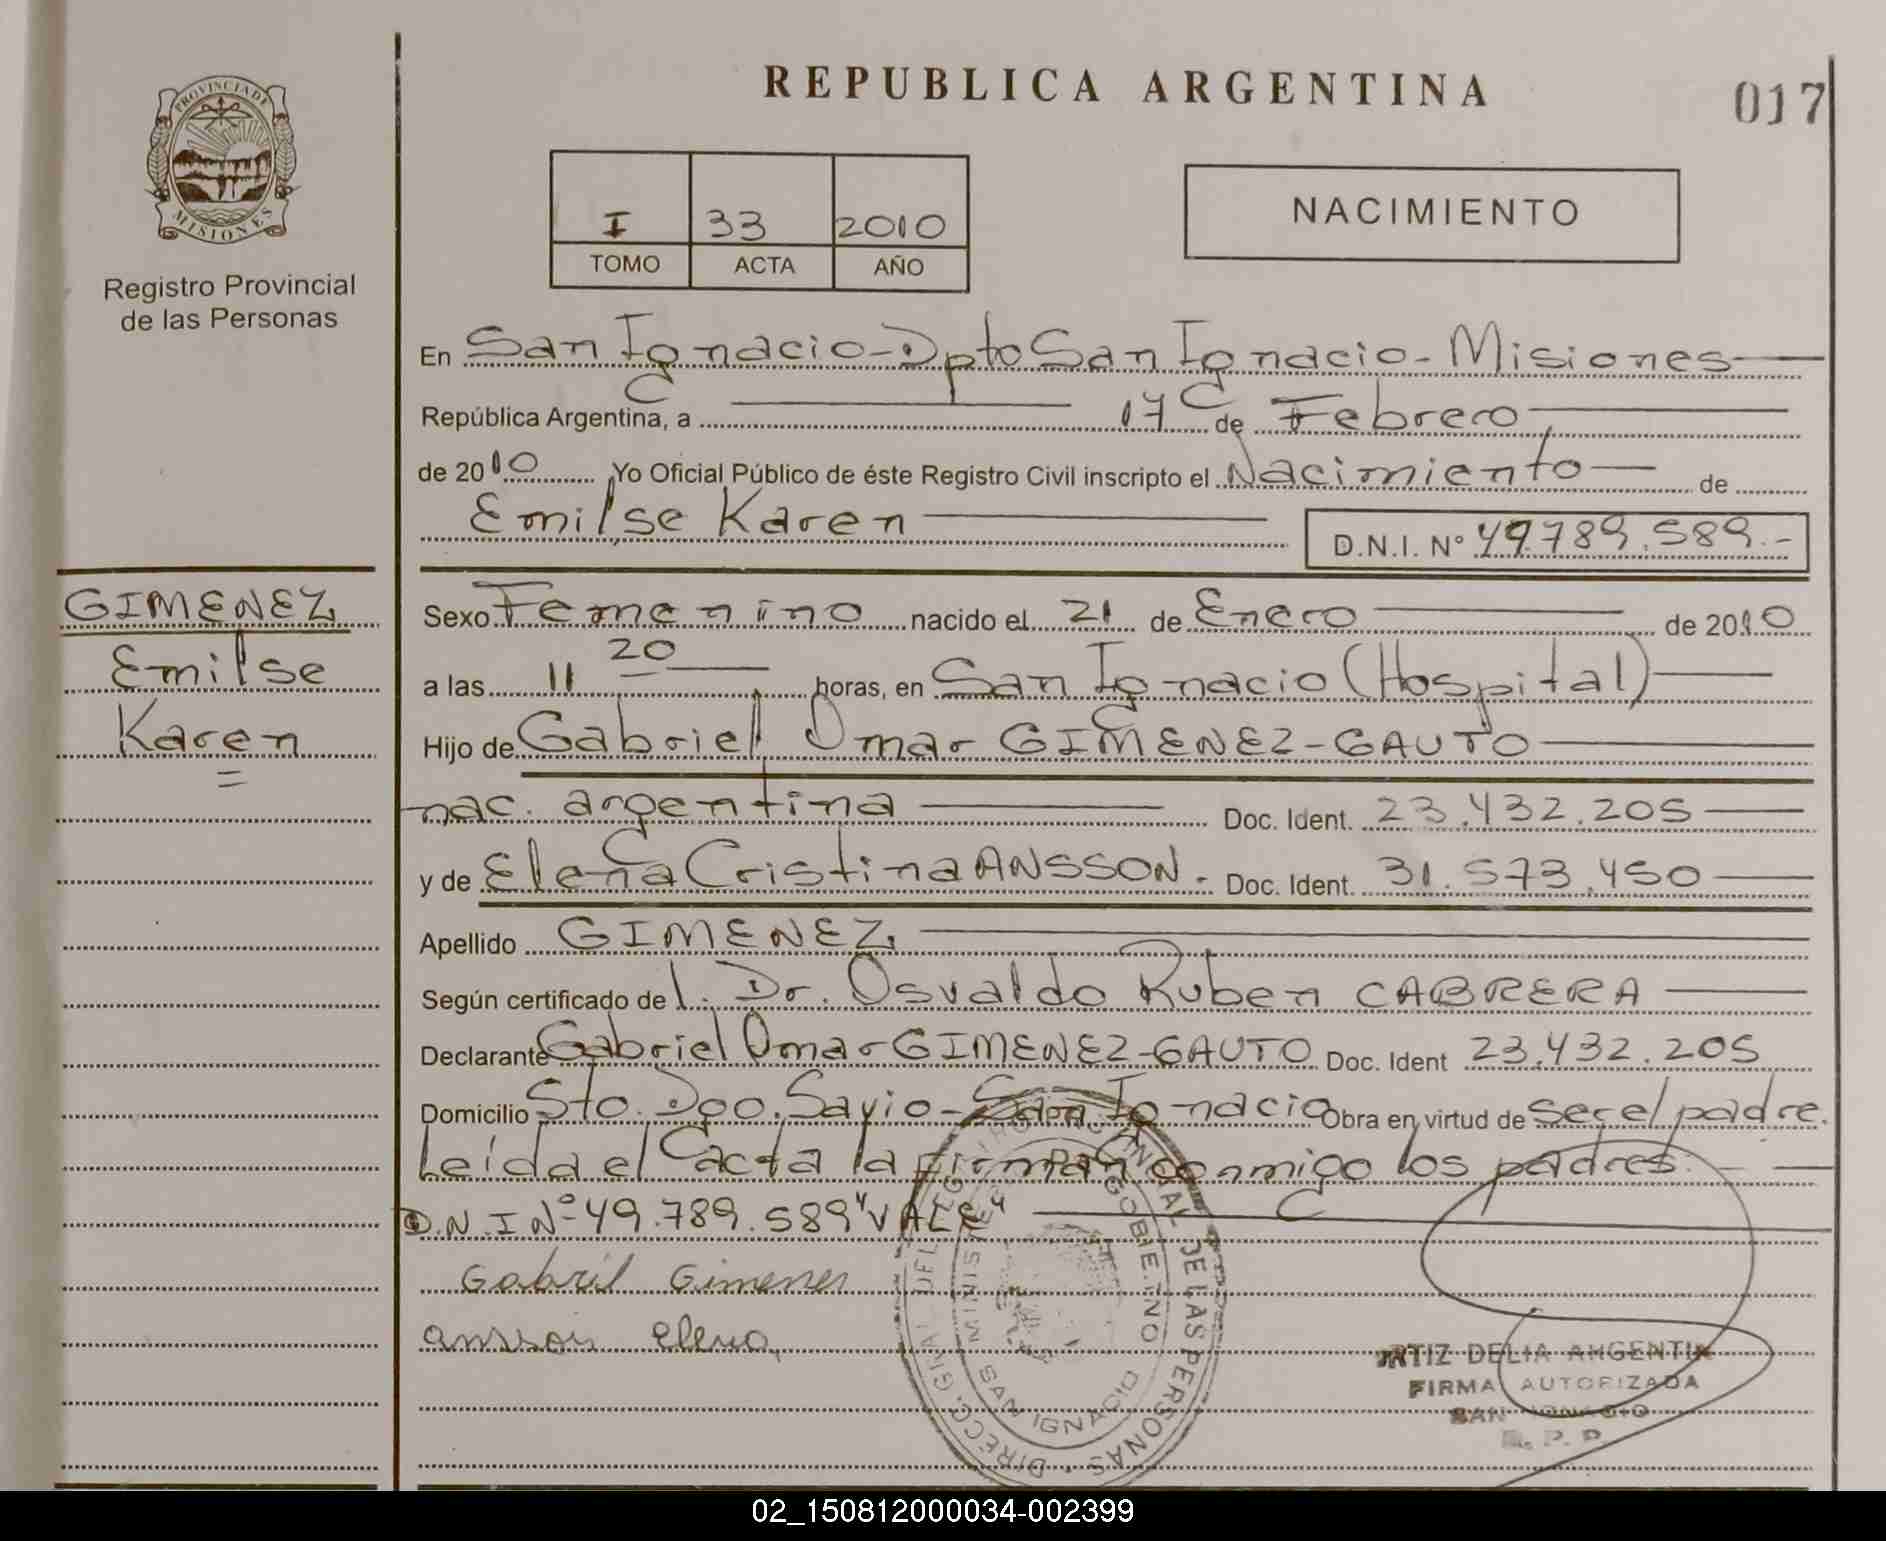 REPUBLICA ARGENTINA
017
PROVINCIA DE
MISIONES
Registro Provincial
de las Personas
I 33 2010
TOMO ACTA AÑO
NACIMIENTO
En San Ignacio - Dpto San Ignacio - Misiones
República Argentina, a 17 de Febrero
de 2010 Yo Oficial Público de éste Registro Civil inscripto el Nacimiento de
Emilse Karen
D.N.I. Nº 49.789.589.-
GIMENEZ
Emilse
Karen
Sexo Femenino nacido el 21 de Enero de 2010
a las 11 20 horas, en San Ignacio (Hospital)
Hijo de Gabriel Omar GIMENEZ-GAUTO
nac. argentina Doc. Ident. 23.432.205
y de Elena Cristina ANSSON. Doc. Ident. 31.573.450
Apellido GIMENEZ
Según certificado de l. Dr. Osvaldo Ruben CABRERA
Declarante Gabriel Omar GIMENEZ-GAUTO Doc. Ident 23.432.205
Domicilio Sto. Dgo. Savio - San Ignacio Obra en virtud de ser el padre.
Leída el acta la firman conmigo los padres.
D.N.I Nº 49.789.589 "VALE"
Gabriel Gimenes
ansson elena
DIRECC. GRAL DEL REGISTRO PROVINCIAL DE LAS PERSONAS
MINISTERIO DE GOBIERNO
SAN IGNACIO
ORTIZ DELIA ARGENTINA
FIRMA AUTORIZADA
SAN IGNACIO
R. P. P
02_150812000034-002399